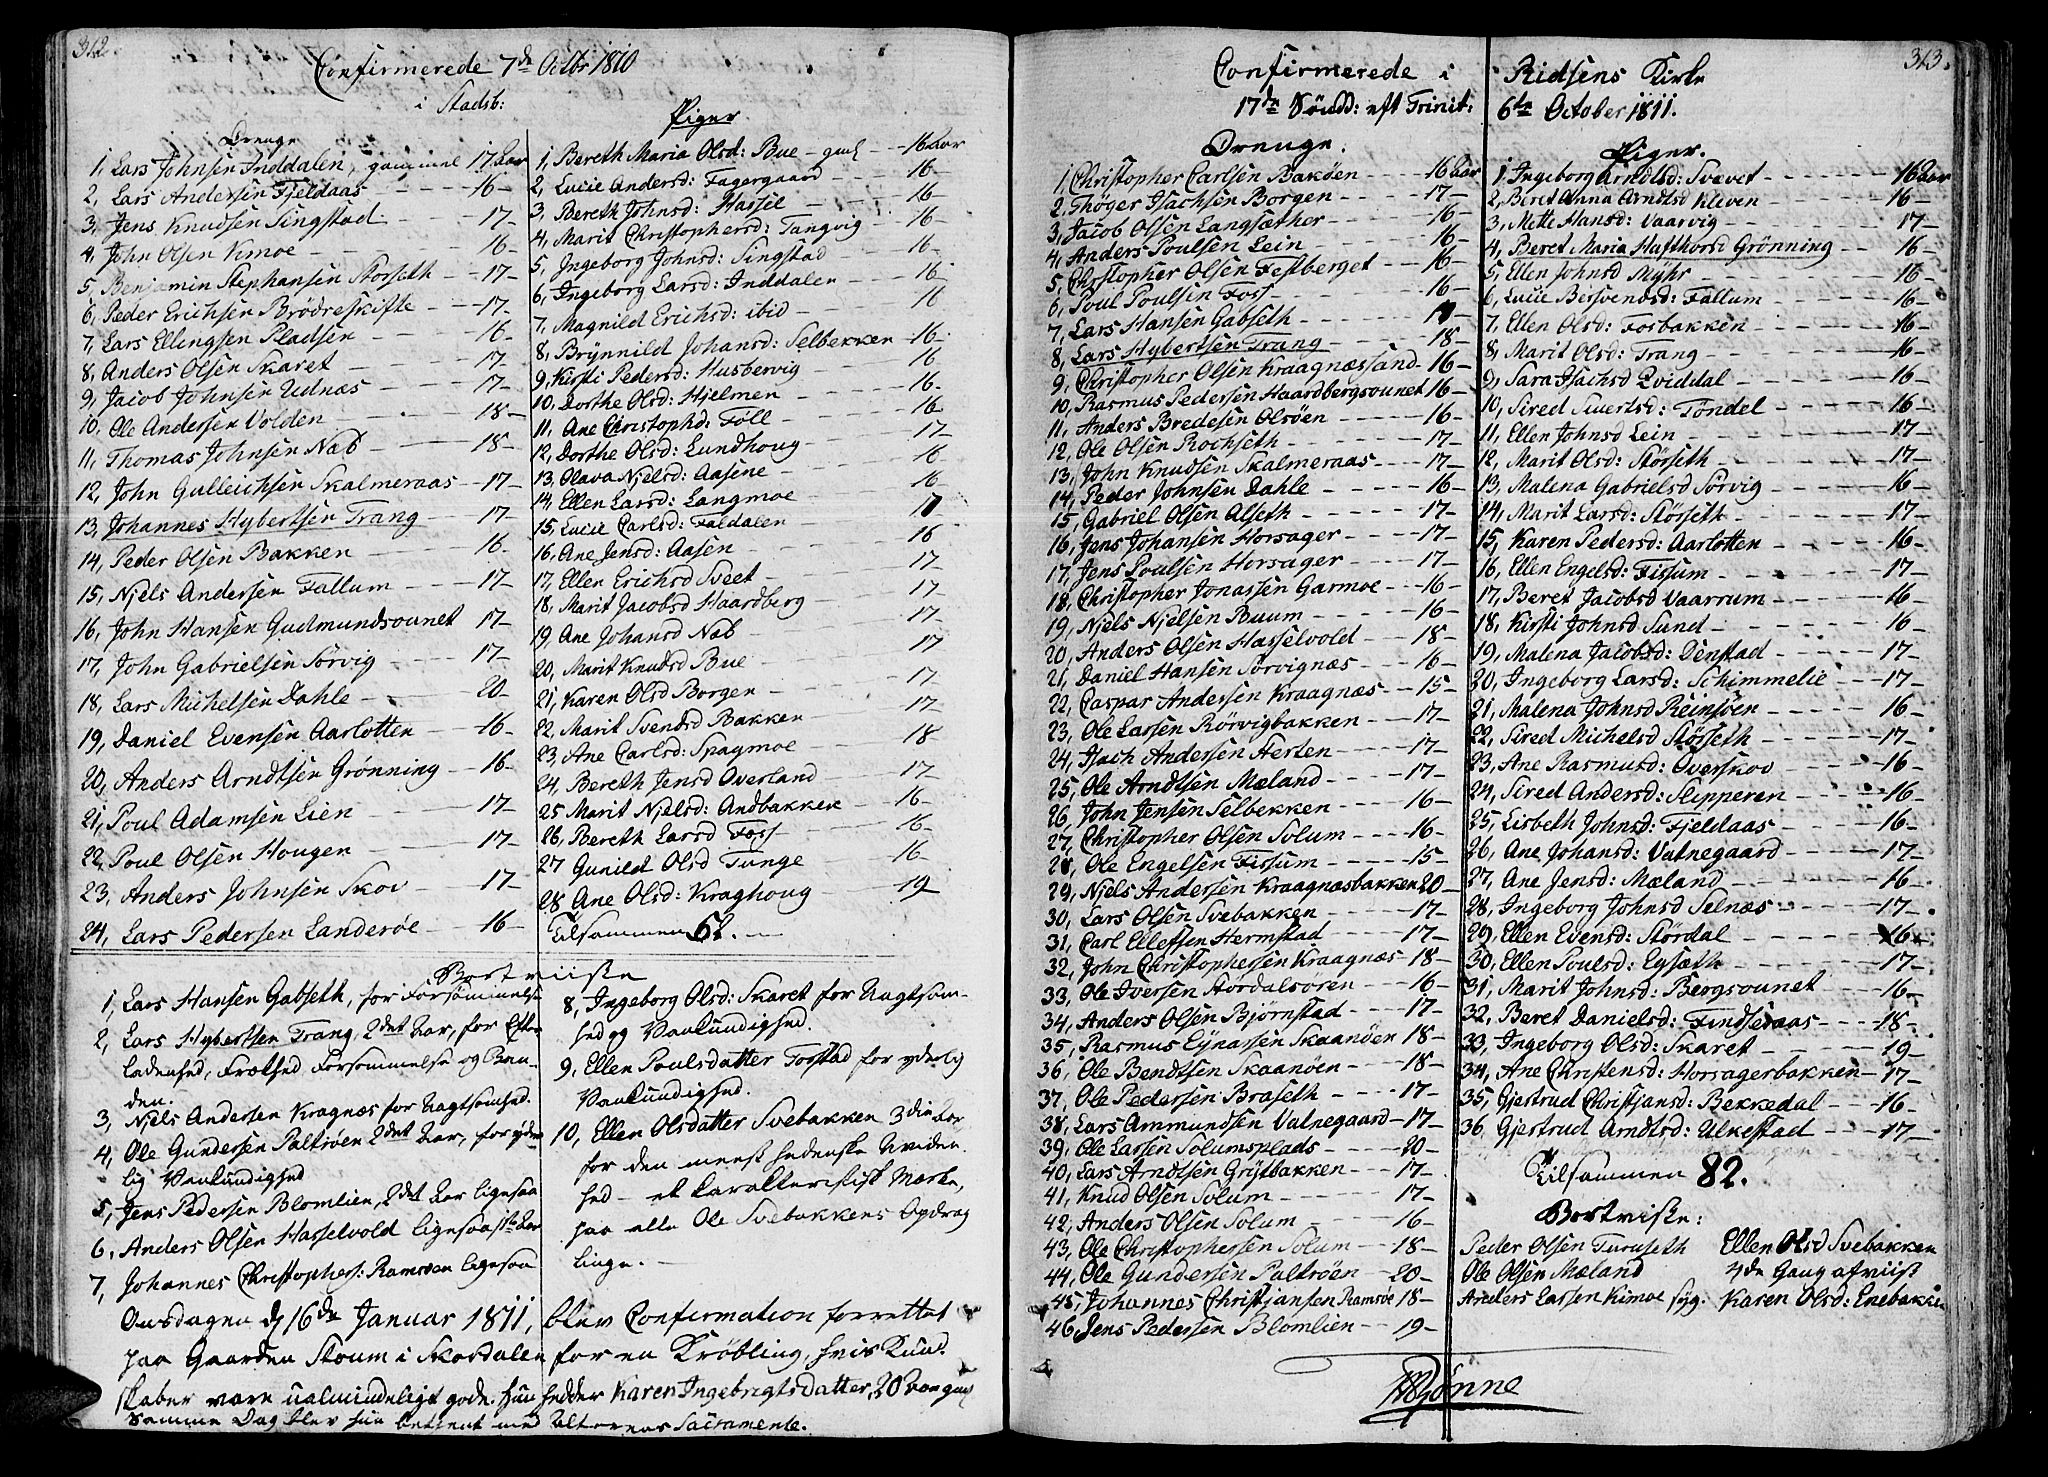 312.
Confirmerede 7de Octbr 1810
i Stadsb:
Drenge
1, Lars Johnsen Inddalen, gammel 17 Aar
2, Lars Andersen Fjeldaas 16
3, Jens Knudsen Singstad 17
4, John Olsen Kimoe 16
5, Benjamin Stephansen Størseth 17
6, Peder Erichsen Brødreskifte 17
7, Lars Ellingsen Pladsen 16
8, Anders Olsen Skaret 17
9, Jacob Johnsen Udnæs 17
10, Ole Andersen Volden 18
11, Thomas Johnsen Næb 18
12, John Gulleichsen Skalmeraas 17
13, Johannes Hybertsen Trang 17
14, Peder Olsen Bakken 16
15, Njels Andersen Fallum 17
16, John Hansen Gudmundsvunet 17
17, John Gabrielsen Sørvig 17
18, Lars Michelsen Dahle 20
19, Daniel Evensen Aarlotten 16
20, Anders Arndtsen Grønning 16
21, Poul Adamsen Lien 17
22, Poul Olsen Hougen 17
23, Anders Johnsen Skov 17
24, Lars Pedersen Landerøe 16
Piger
1, Bereth Maria Olsd: Bue gml 16 Aar
2, Lucie Andersd: Fagergaard 16
3, Bereth Johnsd: Hassel 16
4, Marit Christophersd: Tangvig 16
5, Ingeborg Johnsd: Singstad 16
6, Ingeborg Larsd: Inddalen 16
7, Magnild Erichsd: ibid 16
8, Brynnild Johansd: Selbekken 16
9, Kirsti Pedersd: Husbervig 16
10, Dorthe Olsd: Hjelmen 16
11, Ane Christophd: Føll 16
12, Dorthe Olsd: Lundhoug 17
13, Olava Njelsd: Aasene 16
14, Ellen Larsd: Langmoe 16
15, Lucie Carlsd: Faldalen 17
16, Ane Jensd: Aasen 16
17, Ellen Erichsd Sveet 17
18, Marit Jacobsd Haardberg 17
19, Ane Johansd Næb 17
20, Marit Knudsd Bue 17
21, Karen Olsd Borgen 17
22, Marit Svendsd Bakken 17
23, Ane Carlsd: Spagmoe 18
24, Bereth Jensd Overland 17
25 Marit Njelsd: Andbakken 16
26, Bereth Larsd Foss 16
27 Gunild Olsd Tunge 16
28 Ane Olsd: Kraghoug 19
Tilsammen 52.
Bortviiste
1, Lars Hansen Gabseth, for Forsømmelse
2, Lars Hybertsen Trang, 2det Aar, for Efter
ladenhed, Fræthed Forsømmelse og
3, Njels Andersen Kragnæs for Uagtsomhed.
4, Ole Gundersen Paltrøen 2det Aar, for yder
lig Vankundighed
5, Jens Pedersen Blomlien, 2det Aar ligesaa
6, Anders Olsen Hasselvold ligesaa 1ste Aar
7, Johannes Christophers: Ramsøen ligesaa
8, Ingeborg Olsd: Skaret for Uagtsom-
hed og Vankundighed.
9, Ellen Poulsdatter Fogstad for yderlig
Vankundighed.
10, Ellen Olsdatter Svebakken 3die Aar
for den meest hedenske Uviden
hed - et karakteristisk Mærke,
paa alle Ole Svebakkens Opdrag
linge.
Onsdagen d 16de Januar 1811, blev Confirmation forrettet
paa Gaarden Stoum i Skordalen for en Krøbling, hvis Kund
skaber vare ualmindeligt gode. Hun hedder Karen Ingebrigtsdatter, 20 Aar gml
Samme Dag blev hun betient med Alterens Sacramente.
313.
Confirmerede i Ridsens Kirke
17de Søndd: eft Trinit: 6te October 1811.
Drenge.
1, Christopher Carlsen Bakøen 16 Aar
2, Thøger Isachsen Borgen 17
3, Jacob Olsen Langsæther 16
4, Anders Poulsen Lein 16
5, Christopher Olsen Festberget 16
6, Poul Poulsen Foss 16
7, Lars Hansen Gabseth 17
8, Lars Hybertsen Trang 18
9, Christopher Olsen Kraagnæssand 16
10, Rasmus Pedersen Haardbergsvunet 16
11, Anders Bredesen Olsøen 16
12, Ole Olsen Rochseth 17
13, John Knudsen Skalmeraas 17
14, Peder Johnsen Dahle 16
15, Gabriel Olsen Alseth 17
16, Jens Johansen Horsager 17
17, Jens Poulsen Horsager 17
18, Christopher Jonassen Garmoe 16
19, Njels Njelsen Buum 16
20, Anders Olsen Hasselvold 18
21, Daniel Hansen Sørvignæs 16
22, Caspar Andersen Kraagnæs 15
23, Ole Larsen Rørvigbakken 17
24, Isach Andersen Herten 17
25, Ole Arndtsen Mæland 17
26, John Jensen Selbekken 16
27, Christopher Olsen Solum 16
28, Ole Engelsen Fissum 15
29, Njels Andersen Kraagnæsbakken 20
30, Lars Olsen Svebakken 17
31, Carl Ellefsen Hermstad 17
32, John Christophersen Kraagnæs 18
33, Ole Iversen Stordalsøren 16
34, Anders Olsen Bjørnstad 17
35, Rasmus Ejnarsen Skaanøen 18
36, Ole Bendtsen Skaanøen 18
37, Ole Pedersen Braseth 17
38, Lars Ammundsen Vatnegaard 17
39, Ole Larsen Solumsplads 20
40, Lars Arndtsen Grytbakken 17
41, Knud Olsen Solum 17
42, Anders Olsen Solum 16
43, Ole Christophersen Solum 18
44, Ole Gundersen Paltrøen 20
45, Johannes Christjansen Ramsøe 18
46, Jens Pedersen Blomlien 19
Piger.
1, Ingeborg Arndtsd: Svevet 16 Aar
2, Beret Anna Arndtsd Kleven 16
3, Mette Hansd: Vaarvig 17
4, Beret Maria Hafthorsd Grønning 16
5, Ellen Johnsd Myhr 16
6, Lucie Bersvendsd: Fallum 16
7, Ellen Olsd: Fosbakken 16
8, Marit Olsd: Trang 16
9, Sara Isachsd Qviddal 16
10, Sired Siuertsd: Tøndel 16
11, Ellen Johnsd Lein 17
12, Marit Olsd: Størseth 17
13, Malena Gabrielsd Sørvig 16
14, Marit Larsd: Størseth 17
15, Karen Pedersd: Aarlotten 16
16, Ellen Engelsd: Fissum 17
17, Beret Jacobsd Vaarrum 16
18, Kirsti Johnsd Sund 16
19, Malena Jacobsd: Denstad 17
20, Ingeborg Larsd: Schimmelie 17
21, Malena Johnsd Reinsøen 16
22, Sired Michelsd Størseth 17
23, Ane Rasmusd: Overskov 16
24, Sired Andersd: Slipperen 16
25, Lisbeth Johnsd: Fjeldaas 16
26, Ane Johansd: Vatnegaard 17
27, Ane Jensd: Mæland 16
28, Ingeborg Johnsd Selnæs 17
29, Ellen Evensd: Størdal 16
30, Ellen Poulsd: Eysæth 17
31, Marit Johnsd: Bergsvunet 16
32, Beret Danielsd: Findseraas 18
33, Ingeborg Olsd: Skaret 19
34, Ane Christensd: Horsagerbakken 17
35, Gjertrud Christjansd: Bekkedal 16
36, Gjertrud Arndtsd: Ulkestad 17
Tilsammen 82.
Bortviste:
Peder Olsen Turuseth
Ole Olsen Mæland
Anders Larsen Kimoe syg.
Ellen Olsd Svebakken
4de Gang afviist
Karen Olsd: Enebakken